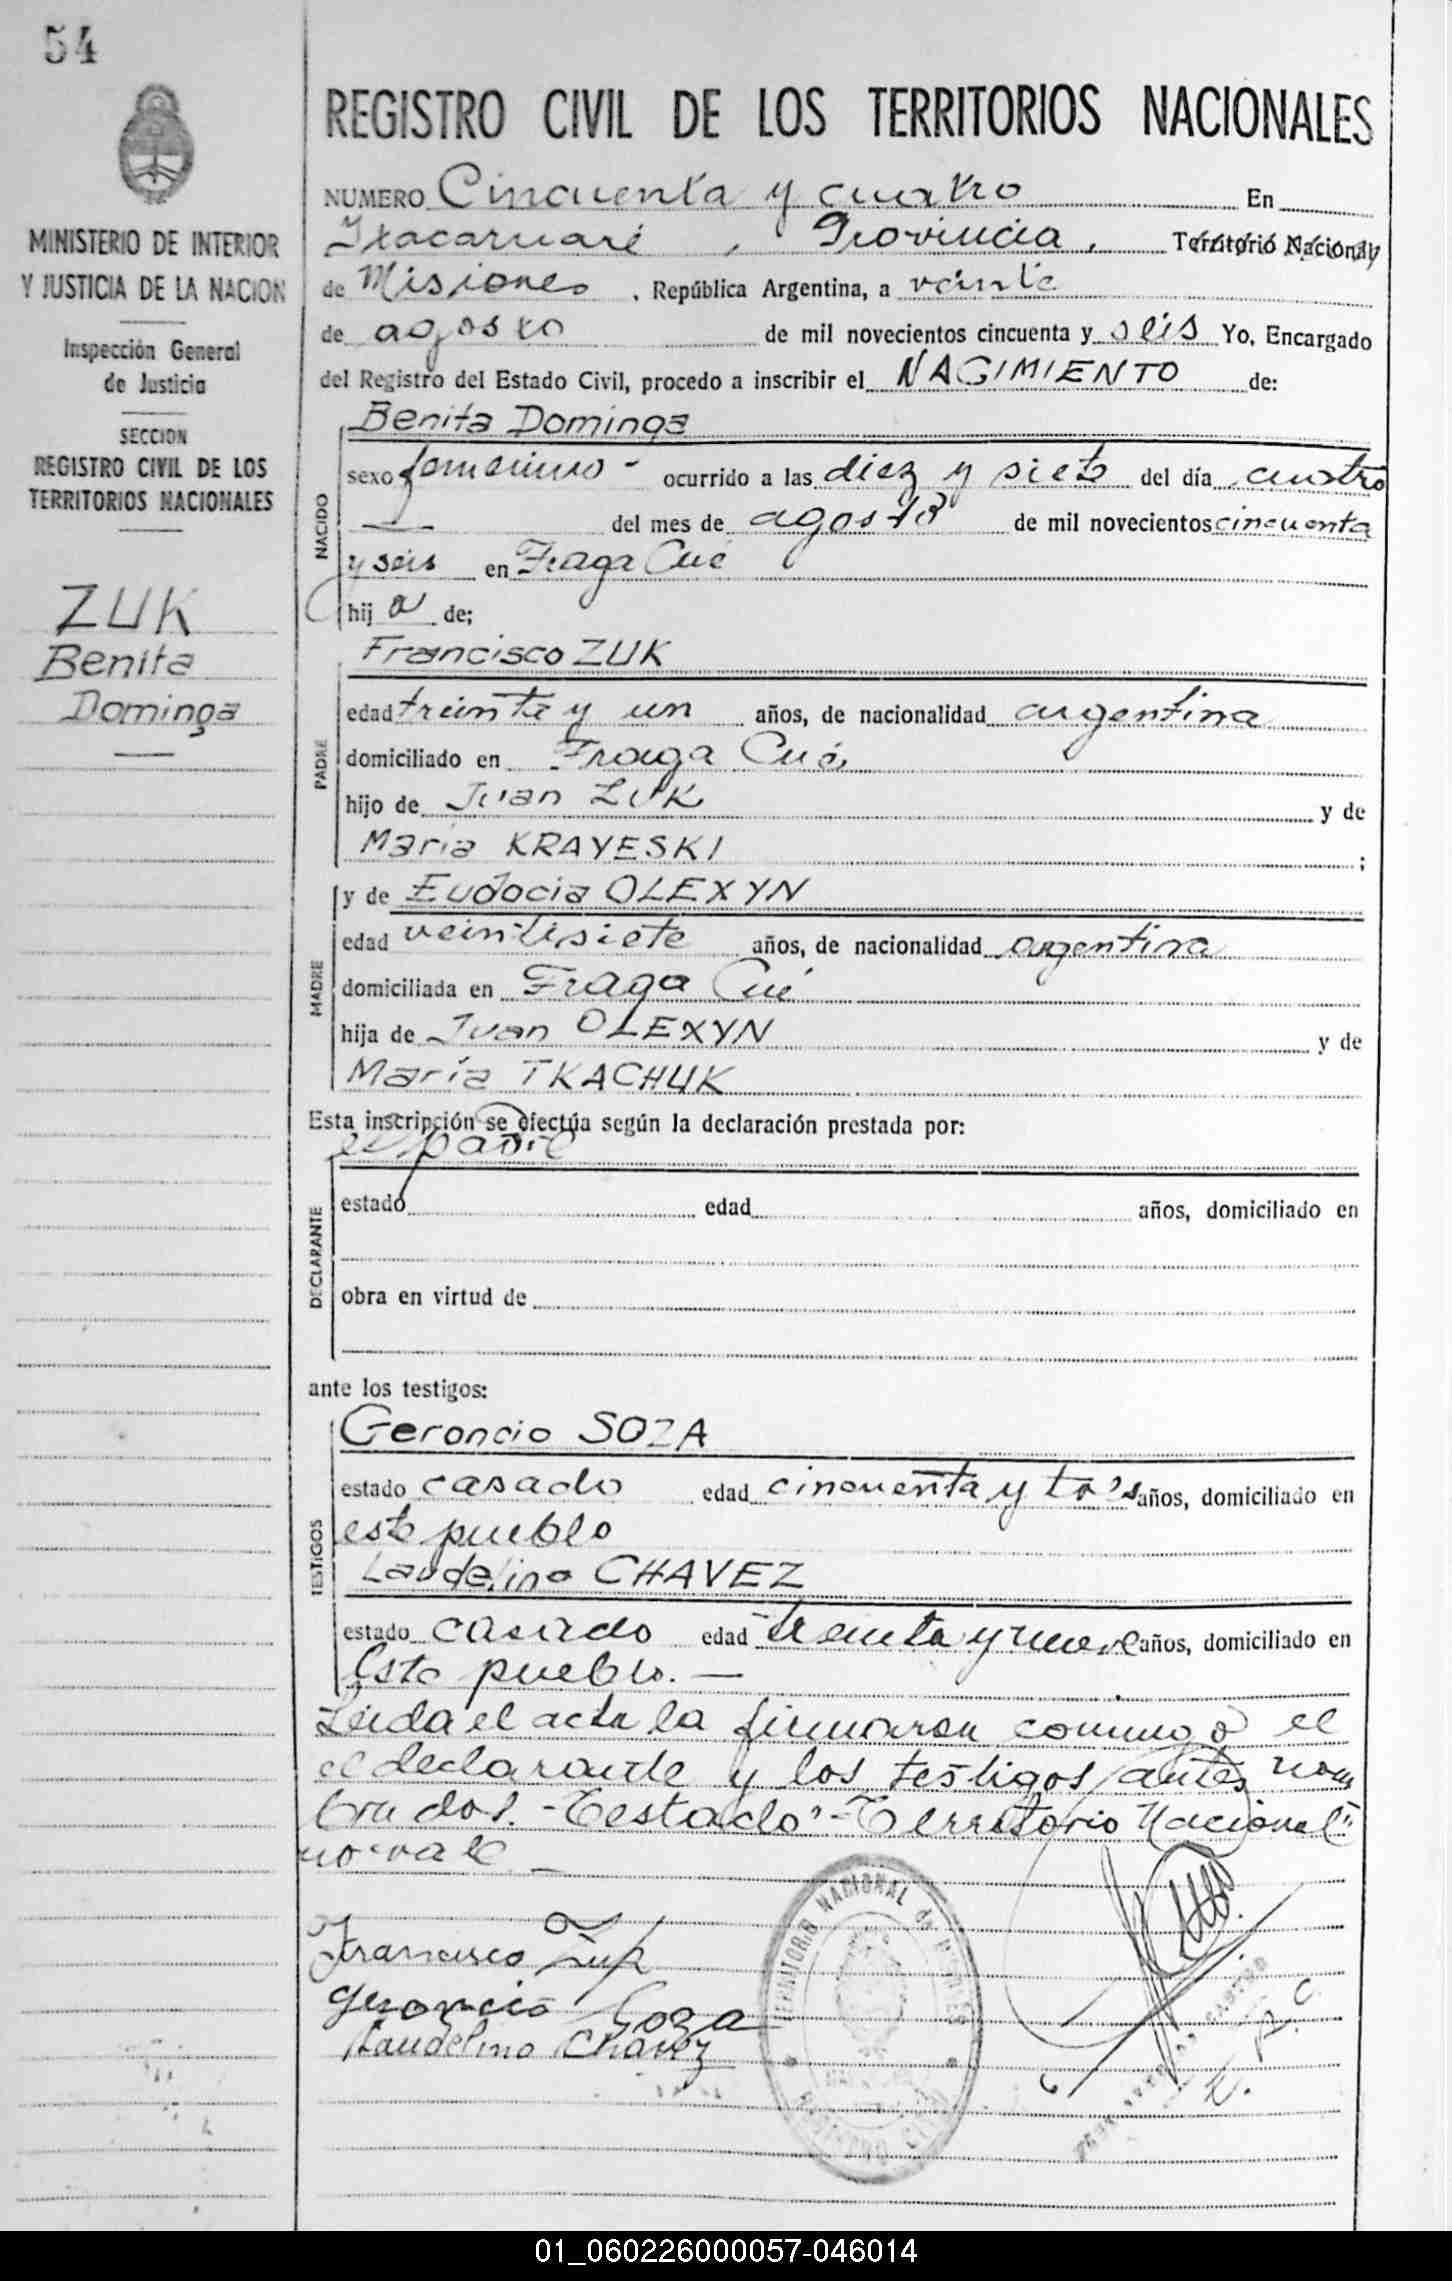 54
MINISTERIO DE INTERIOR
Y JUSTICIA DE LA NACION
Inspección General
de Justicia
SECCION
REGISTRO CIVIL DE LOS
TERRITORIOS NACIONALES
ZUK
Benita
Dominga
REGISTRO CIVIL DE LOS TERRITORIOS NACIONALES
NUMERO Cincuenta y cuatro En
Itacaruaré, Provincia, Territorio Nacional
de Misiones, República Argentina, a veinte
de agosto de mil novecientos cincuenta y seis Yo, Encargado
del Registro del Estado Civil, procedo a inscribir el NACIMIENTO de:
NACIDO
Benita Dominga
sexo femenino - ocurrido a las diez y siete del día cuatro
— del mes de agosto de mil novecientos cincuenta
y seis en Fraga Cué
hij a de;
PADRE
Francisco ZUK
edad treinta y un años, de nacionalidad argentina
domiciliado en Fraga Cué
hijo de Juan ZUK y de
María KRAYESKI ;
MADRE
y de Eudocia OLEXYN
edad veintisiete años, de nacionalidad argentina
domiciliada en Fraga Cué
hija de Juan OLEXYN y de
María TKACHUK
Esta inscripción se efectúa según la declaración prestada por:
el padre
DECLARANTE
estado edad años, domiciliado en
obra en virtud de
ante los testigos:
TESTIGOS
Geroncio SOZA
estado casado edad cincuenta y años, domiciliado en
este pueblo
Laudelino CHAVEZ
estado casado edad treinta y nueve años, domiciliado en
este pueblo. —
Leida el acta la firmaron conmigo el
el declarante y los testigos antes nom
brados. - Testado "Territorio Nacional"
no vale —
Francisco Zuk
Geroncio Soza
Laudelino Chavez
TERRITORIO NACIONAL de MISIONES
REGISTRO CIVIL
01_060226000057-046014